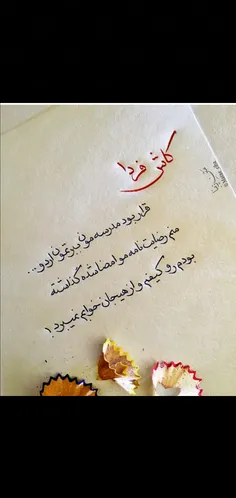 کاش فردا
قرار بود مدرسه مونی ببرتمون اردو...
منم رضایت نامه مو امضا شده گذاشته
بودم رو کیفم و از هیجان خوابم نمیبرد!